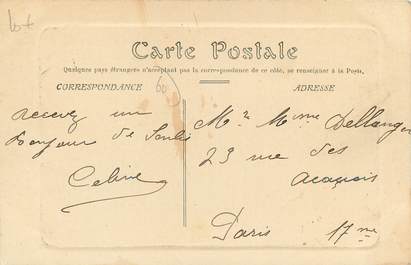 Carte Postale
Quelques pays étrangers n'acceptant pas la correspondance de ce côté, se renseigner à la Poste.
CORRESPONDANCE
recevez un
Bonjour de Senlis
Celine
ADRESSE
Mr Mme Dellanger
23 rue des
acacias
Paris 17me